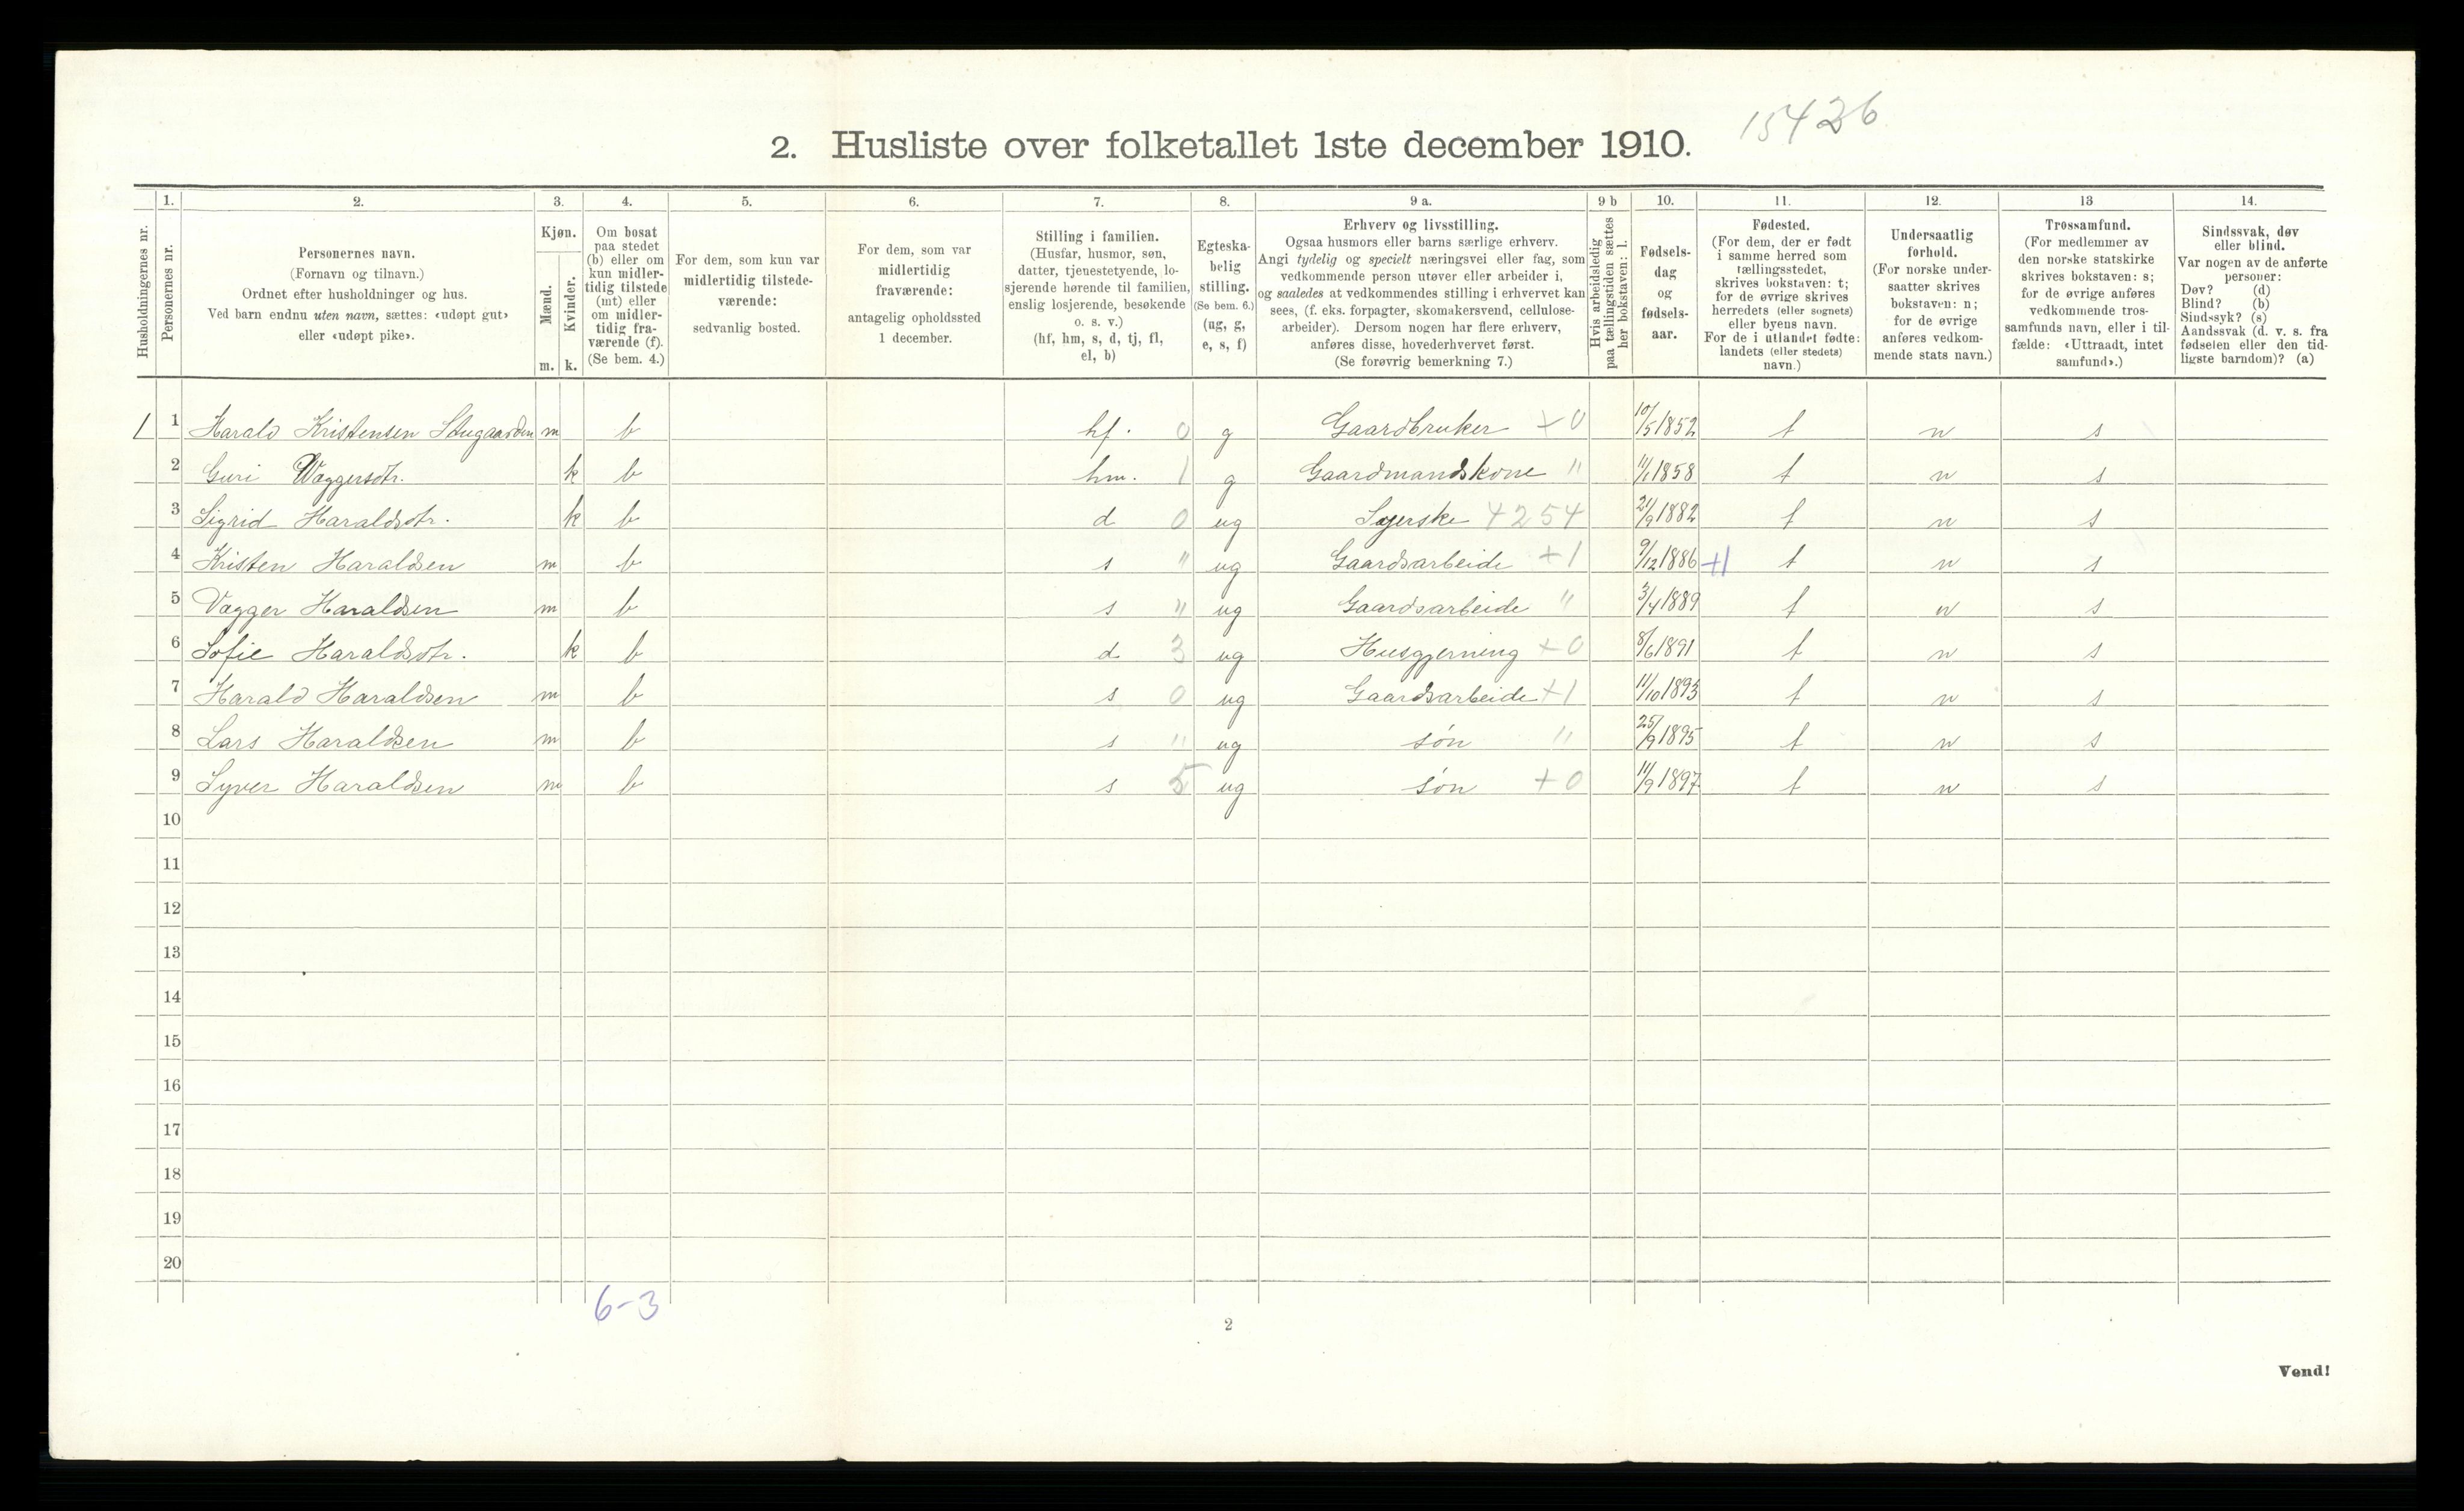 15426
2. Husliste over folketallet 1ste december 1910.
Husholdningernes nr.
1.
Personernes nr.
2.
Personernes navn.
(Fornavn og tilnavn.)
Ordnet efter husholdninger og hus.
Ved barn endnu uten navn, sættes: «udøpt gut»
eller «udøpt pike».
3.
Kjøn.
Mænd.
Kvinder.
m. k.
4.
Om bosat
paa stedet
(b) eller om
kun midler-
tidig tilstede
(mt) eller
om midler-
tidig fra-
værende (f).
(Se bem. 4.)
5.
For dem, som kun var
midlertidig tilstede-
værende:
sedvanlig bosted.
6.
For dem, som var
midlertidig
fraværende:
antagelig opholdssted
1 december.
7.
Stilling i familien.
(Husfar, husmor, søn,
datter, tjenestetyende, lo-
sjerende hørende til familien,
enslig losjerende, besøkende
o. s. v.)
(hf, hm, s, d, tj, fl,
el, b)
8.
Egteska-
belig
stilling.
(Se bem. 6.)
(ug, g,
e, s, f)
9 a.
Erhverv og livsstilling.
Ogsaa husmors eller barns særlige erhverv.
Angi tydelig og specielt næringsvei eller fag, som
vedkommende person utøver eller arbeider i,
og saaledes at vedkommendes stilling i erhvervet kan
sees, (f. eks. forpagter, skomakersvend, cellulose-
arbeider). Dersom nogen har flere erhverv,
anføres disse, hovederhvervet først.
(Se forøvrig bemerkning 7.)
9 b
Hvis arbeidsledig
paa tællingstiden sættes
her bokstaven: l.
10.
Fødsels-
dag
og
fødsels-
aar.
11.
Fødested.
(For dem, der er født
i samme herred som
tællingsstedet,
skrives bokstaven: t;
for de øvrige skrives
herredets (eller sognets)
eller byens navn.
For de i utlandet fødte:
landets (eller stedets)
navn.)
12.
Undersaatlig
forhold.
(For norske under-
saatter skrives
bokstaven: n;
for de øvrige
anføres vedkom-
mende stats navn.)
13
Trossamfund.
(For medlemmer av
den norske statskirke
skrives bokstaven: s;
for de øvrige anføres
vedkommende tros-
samfunds navn, eller i til-
fælde: «Uttraadt, intet
samfund».)
14.
Sindssvak, døv
eller blind.
Var nogen av de anførte
personer:
Døv? (d)
Blind? (b)
Sindssyk? (s)
Aandssvak (d. v. s. fra
fødselen eller den tid-
ligste barndom)? (a)
1 1 Harald Kristensen Stugaarden m b hf. 0 g Gaardbruker +0 10/5 1852 t n s
2 Guri Væggersdtr. k b hm. 1 g Gaardmandskone " 11/1 1858 t n s
3 Sigrid Haraldsdtr. k b d 0 ug Syerske 4254 21/9 1882 t n s
4 Kristen Haraldsen m b s " ug Gaardsarbeide +1 9/12 1886 +1 t n s
5 Vægger Haraldsen m b s " ug Gaardsarbeide " 3/4 1889 t n s
6 Sofie Haraldsdtr. k b d 3 ug Husgjerning +0 8/6 1891 t n s
7 Harald Haraldsen m b s 0 ug Gaardsarbeide +1 11/10 1893 t n s
8 Lars Haraldsen m b s " ug søn " 25/9 1895 t n s
9 Syver Haraldsen m b s 5 ug søn +0 11/9 1897 t n s
10
11
12
13
14
15
16
17
18
19
20
6-3
2
Vend!